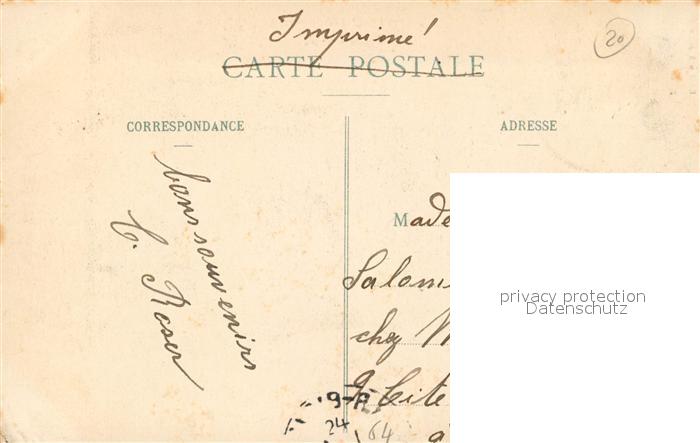 Imprimé
20
CARTE POSTALE
CORRESPONDANCE
ADRESSE
bons souvenirs
C. Roser
Made
Salom
chez M
9 Cite
privacy protection
Datenschutz
24
64